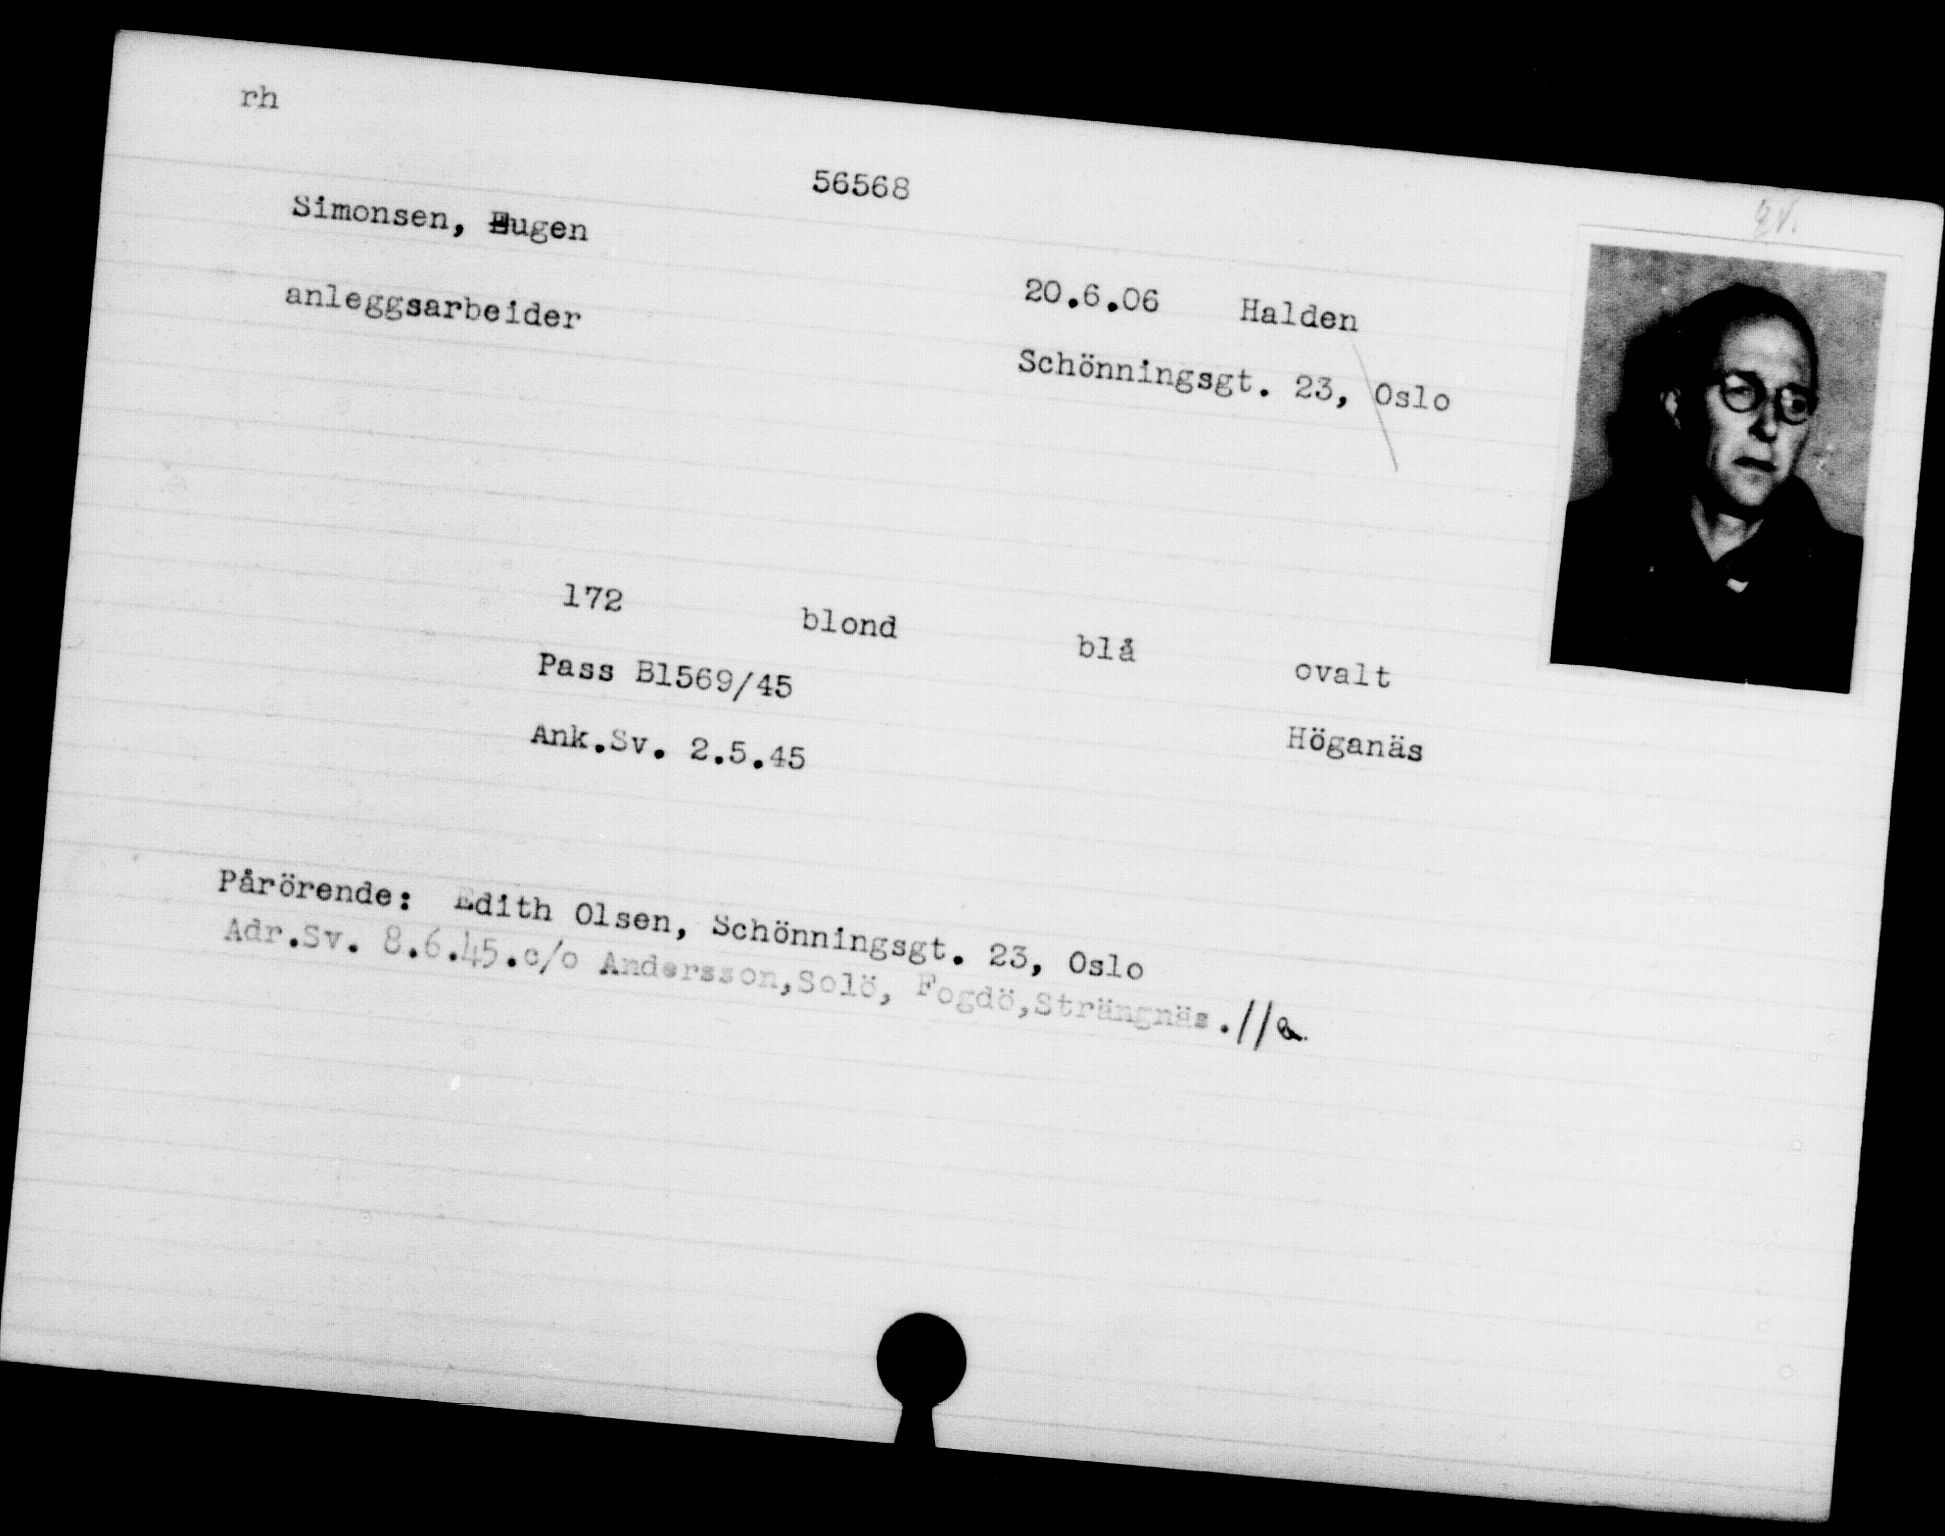 rh
56568
Simonsen, Eugen
20.6.06 Halden
anleggsarbeider
Schönningsgt. 23, Oslo
172 blond blå ovalt
Pass B1569/45
Ank.Sv. 2.5.45 Höganäs
Pårörende: Edith Olsen, Schönningsgt. 23, Oslo
Adr.Sv. 8.6.45.c/o Andersson,Solö, Fogdö,Strängnäs.//